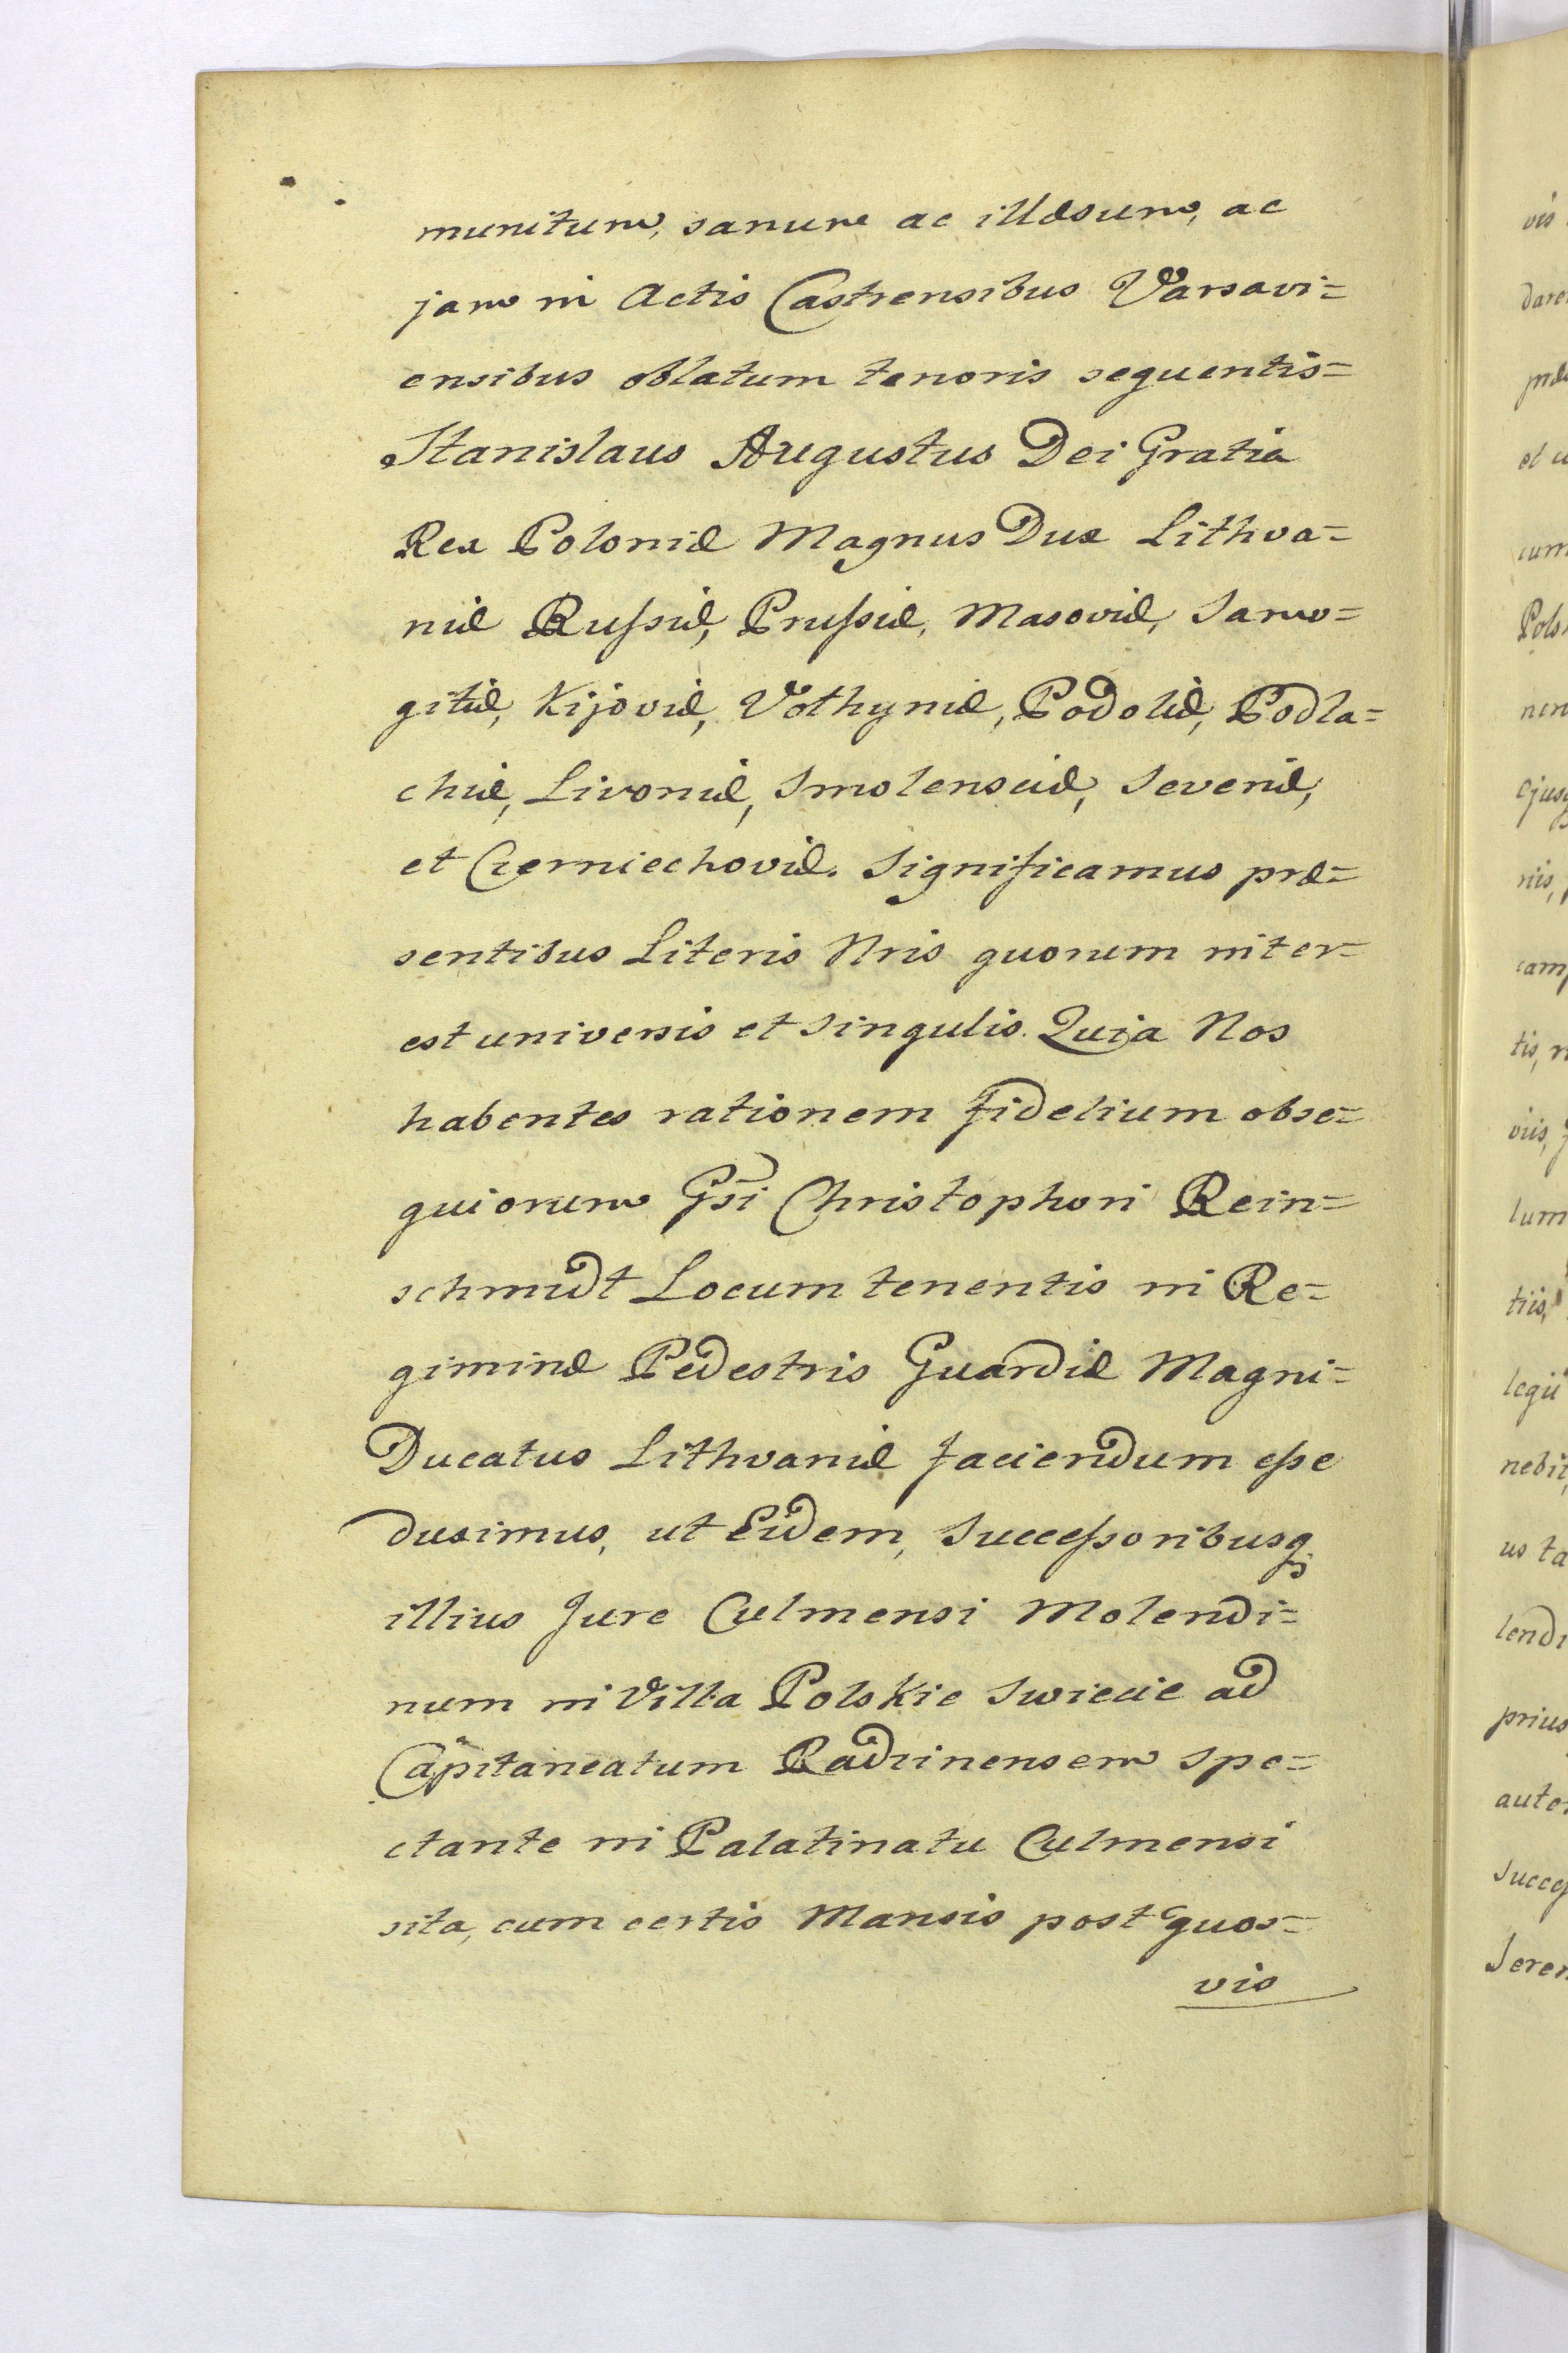 munitum, sanum ac illæsum, ac
jam in Actis Castrensibus Varsavi=
ensibus oblatum tenoris sequentis=
Stanislaus Augustus Dei Gratia
Rex Poloniæ Magnus Dux Lithva=
niæ Russiæ, Prussiæ, Masoviæ, Samo=
gitiæ, Kijoviæ, Volhyniæ, Podoliæ, Podla=
chiæ, Livoniæ, Smolensciæ, Severiæ,
et Czerniechoviæ. Significamus præ=
sentibus Literis Nris quorum inter=
est universis et singulis. Quia Nos
habentes rationem fidelium obse=
quiorum Gsi Christophori Rein=
schmidt Locum tenentis in Re=
giminæ Pedestris Guardiæ Magni=
Ducatus Lithvaniæ faciendum esse
duximus, ut Eidem, Successoribusq
illius Jure Culmensi Molendi=
num in Villa Polskie Swiecie ad
Capitaneatum Radzinensem spe=
ctante in Palatinatu Culmensi
sita, cum certis Mansis post quos=
vis
vis
dare
præ
et u
cum
Pols
nen
Ejusq
riis,
camp
tis, n
viis,
lum
tiis,
legii
nebit
us ta
lendi
prius
aute
Success
Seren